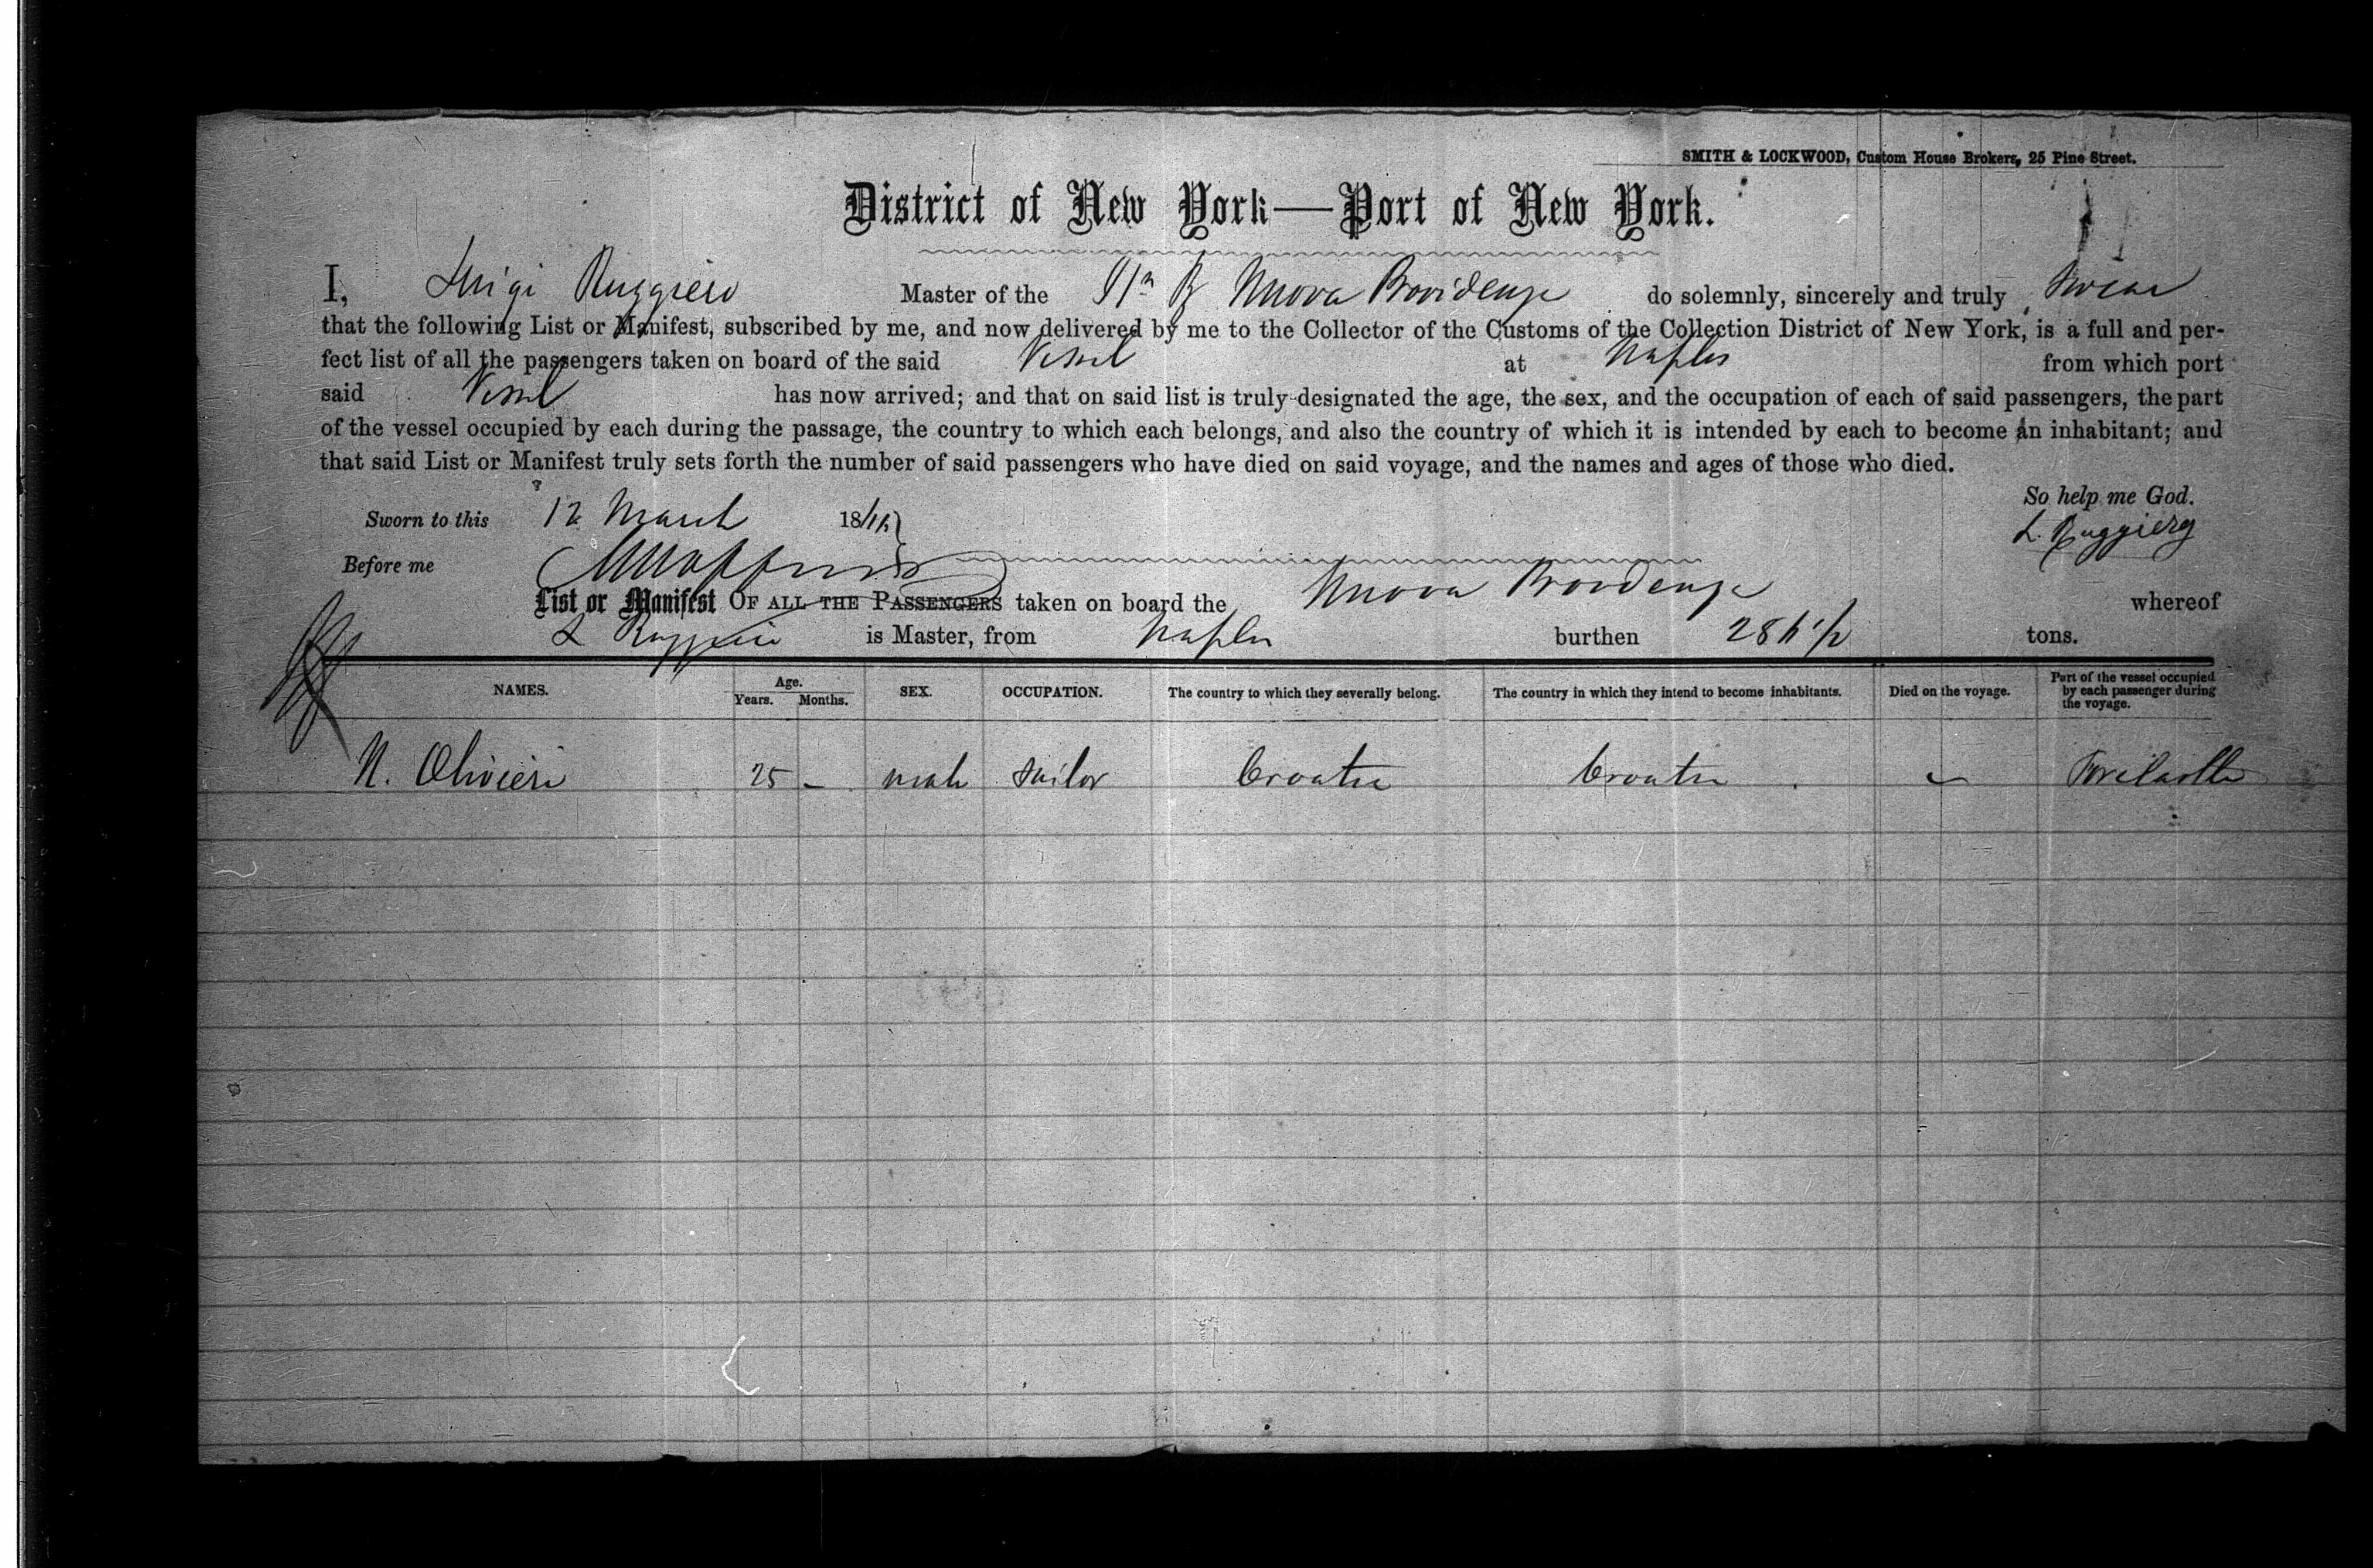 SMITH & LOCKWOOD, Custom House Brokers, 25 Pine Street.
District of New York—Port of New York.
I, Luigi Ruggiero Master of the It'n B Nuova Providenza do solemnly, sincerely and truly swear
that the following List or Manifest, subscribed by me, and now delivered by me to the Collector of the Customs of the Collection District of New York, is a full and per-
fect list of all the passengers taken on board of the said Vessel at Naples from which port
said Vessel has now arrived; and that on said list is truly designated the age, the sex, and the occupation of each of said passengers, the part
of the vessel occupied by each during the passage, the country to which each belongs, and also the country of which it is intended by each to become an inhabitant; and
that said List or Manifest truly sets forth the number of said passengers who have died on said voyage, and the names and ages of those who died.
So help me God.
Sworn to this 12 March 18
L. Ruggiero
Before me
List or Manifest OF ALL THE PASSENGERS taken on board the Nuova Providenza whereof
L Ruggiero is Master, from Naples burthen tons.
NAMES. Age. Years. Months. SEX. OCCUPATION. The country to which they severally belong. The country in which they intend to become inhabitants. Died on the voyage. Part of the vessel occupied by each passenger during the voyage.
N. Olivieri 25 – male sailor Croatia Croatia – Forecastle